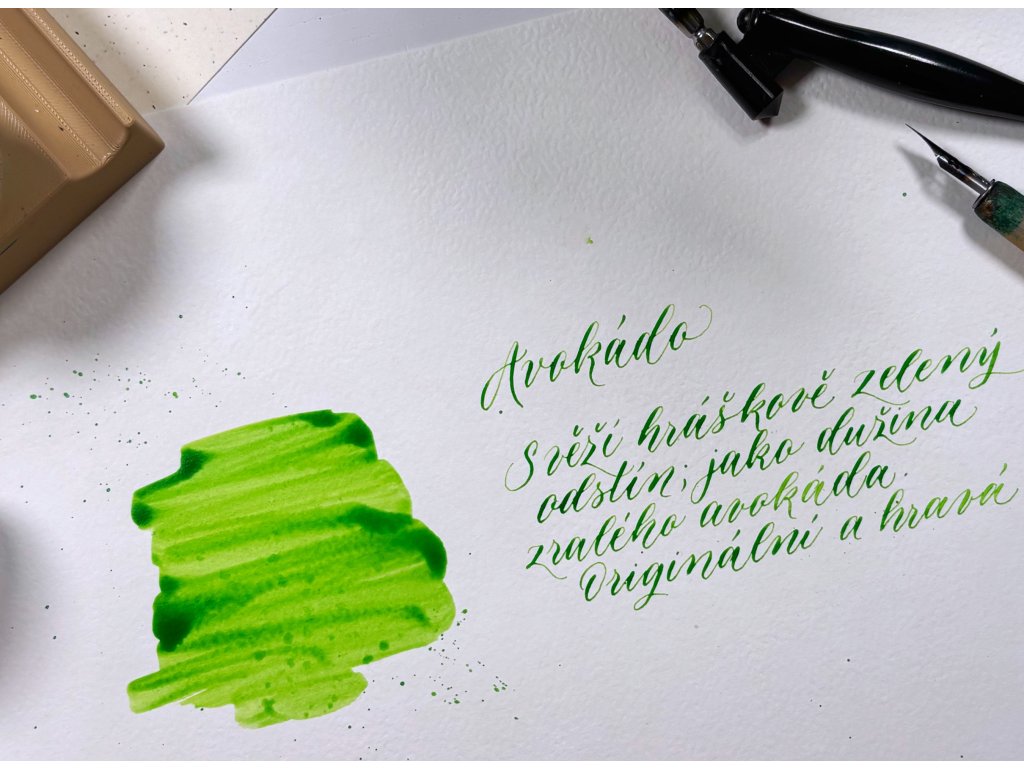 Avokádo
Svěží hráškově zelený
odstín; jako dužina
zralého avokáda.
Originální a hravá